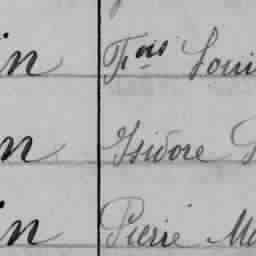 in Fois Loui
in Isidore
in Pierre Ma